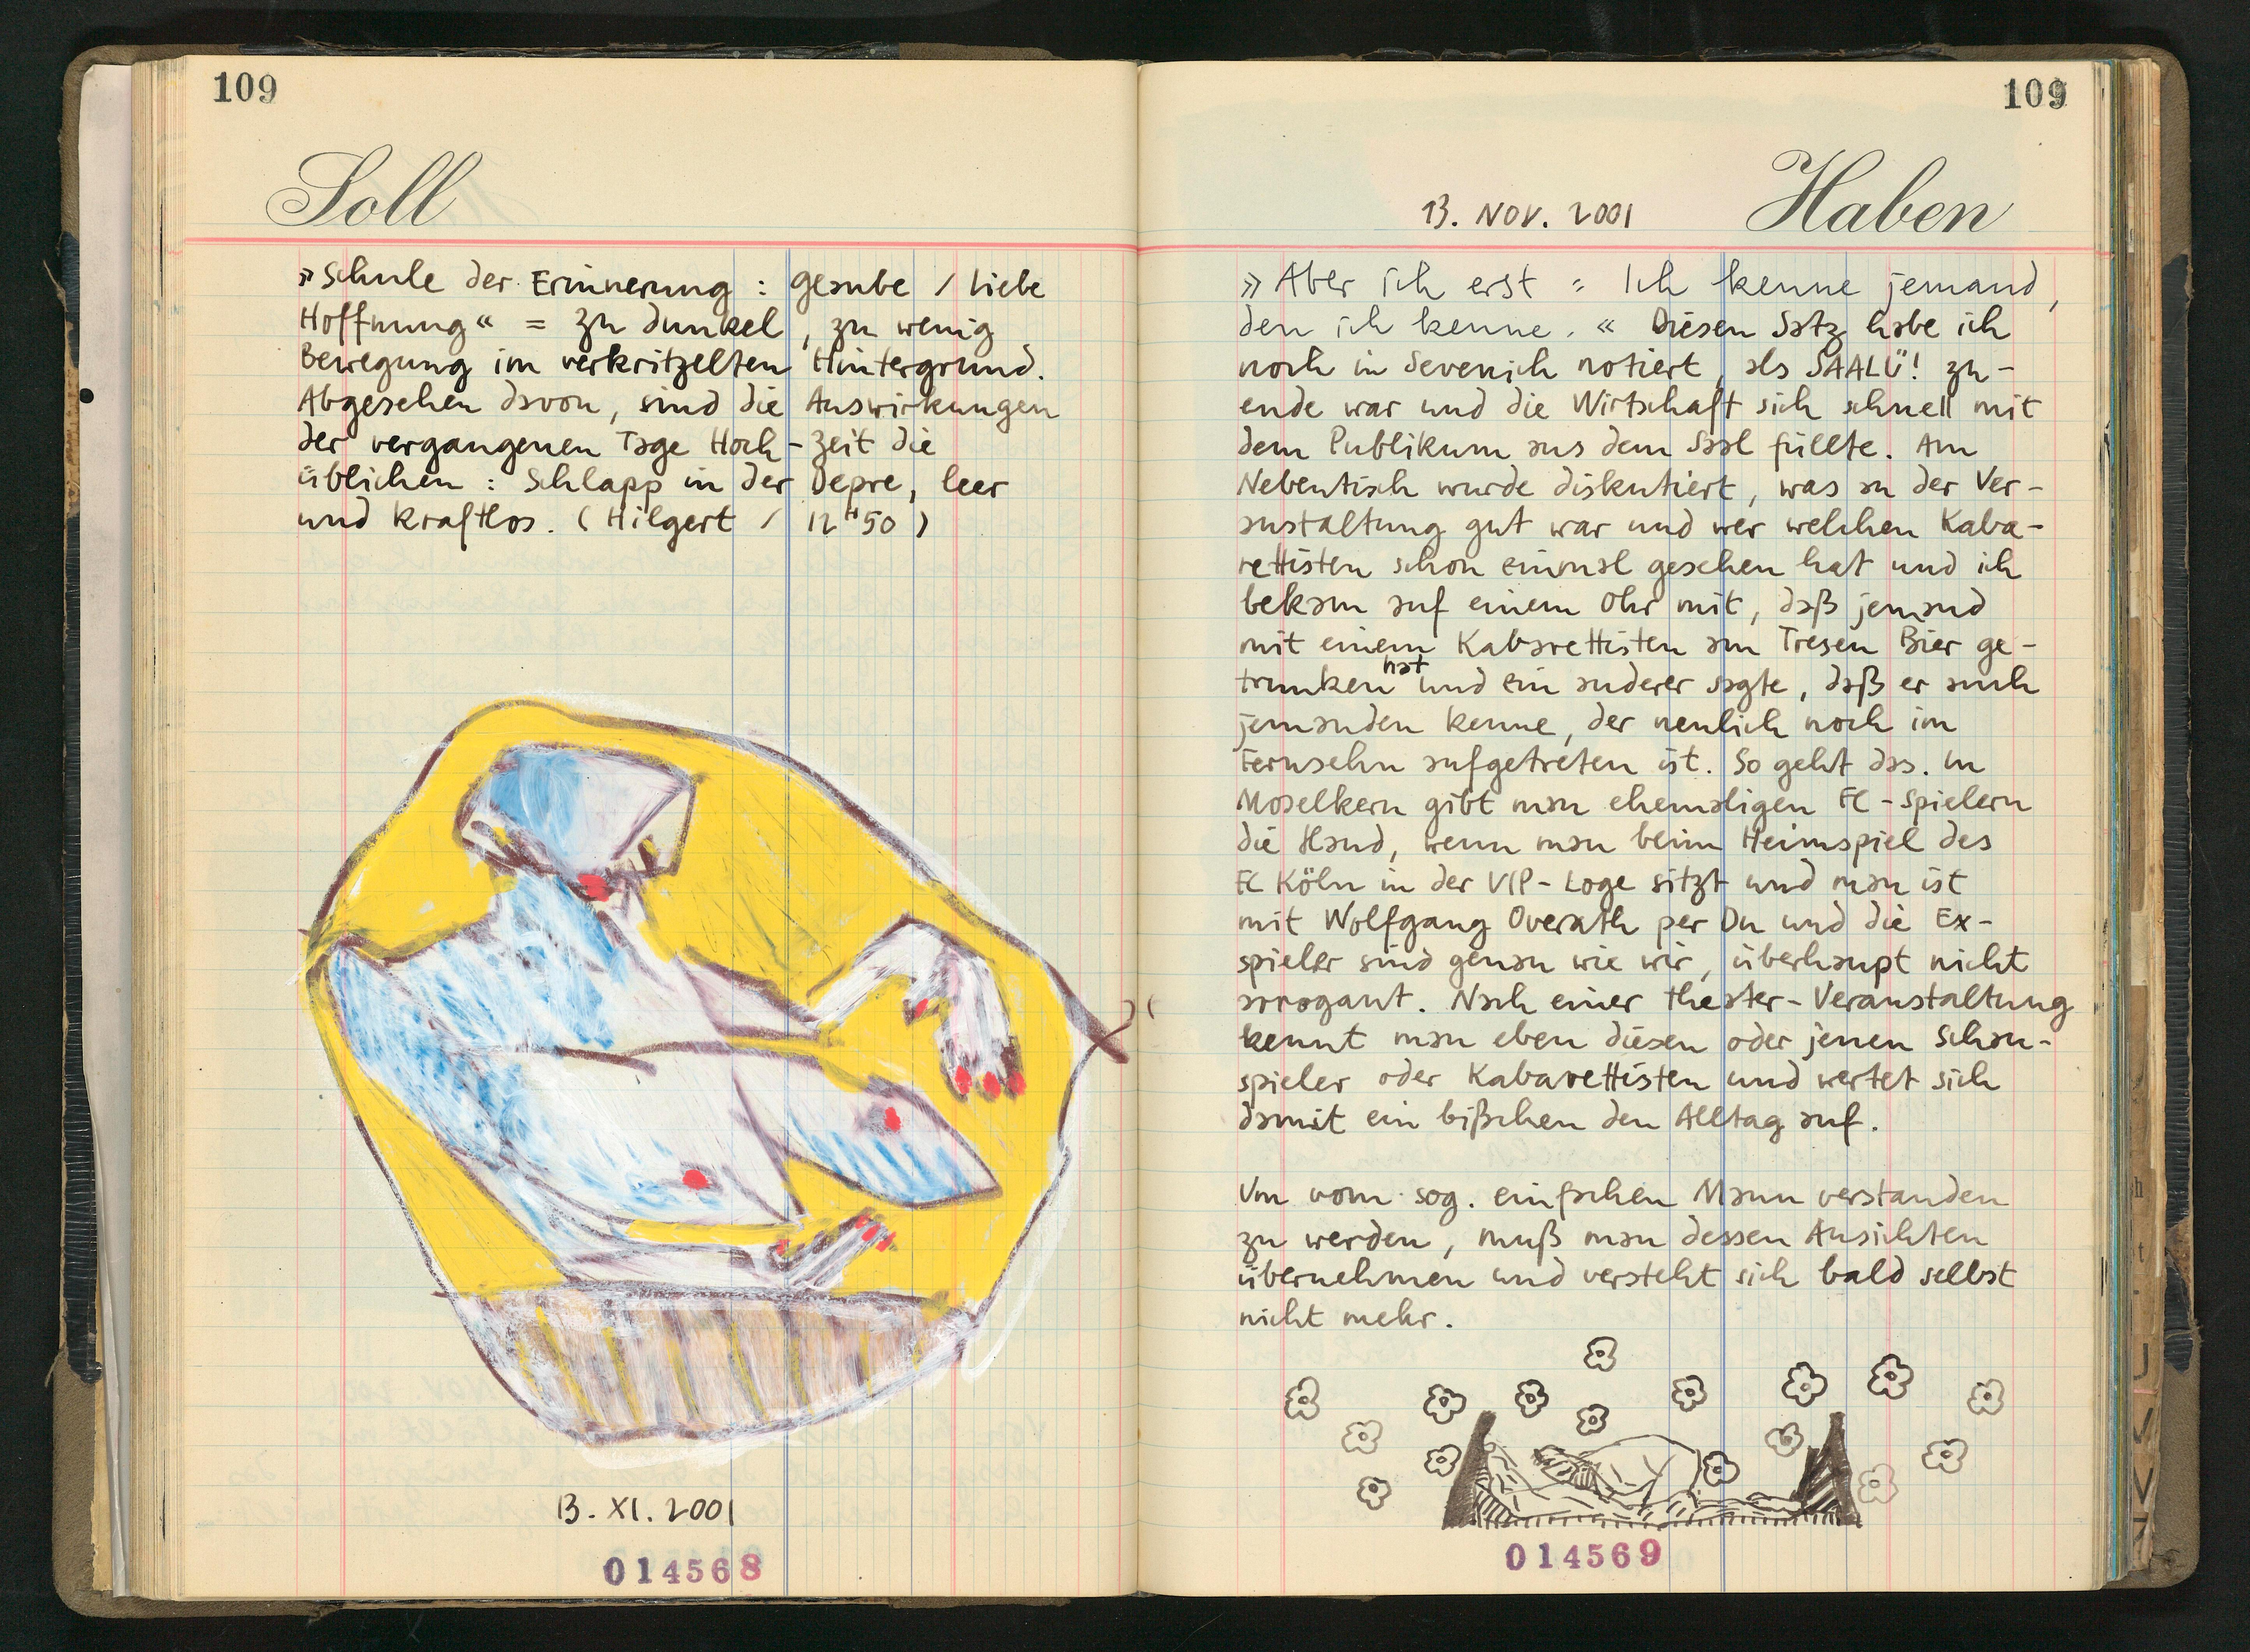 109
Soll
»Schule der Erinnerung : Glaube / Liebe
Hoffnung« = zu dunkel, zu wenig
Bewegung im verkritzelten Hintergrund.
Abgesehen davon, sind die Auswirkungen
der vergangenen Tage Hoch-zeit die
üblichen : Schlapp in der Depre, leer
und kraftlos. (Hilgert / 12 H 50)
13. XI. 2001
014568
109
13. NOV. 2001 Haben
»Aber ich erst : Ich kenne jemand,
den ich kenne.« Diesen Satz habe ich
noch in Sevenich notiert, als SAALÜ! zu-
ende war und die Wirtschaft sich schnell mit
dem Publikum aus dem Saal füllte. Am
Nebentisch wurde diskutiert, was an der Ver-
anstaltung gut war und wer welchen Kaba-
rettisten schon einmal gesehen hat und ich
bekam auf einem Ohr mit, daß jemand
mit einem Kabarettisten am Tresen Bier ge-
trunken hat und ein anderer sagte, daß er auch
jemanden kenne, der neulich noch im
Fernsehn aufgetreten ist. So geht das. In
Moselkern gibt man ehemaligen FC-Spielern
die Hand, wenn man beim Heimspiel des
FC Köln in der VIP-Loge sitzt und man ist
mit Wolfgang Overath per Du und die Ex-
spieler sind genau wie wir, überhaupt nicht
arrogant. Nach einer Theater-Veranstaltung
kennt man eben diesen oder jenen Schau-
spieler oder Kabarettisten und wertet sich
damit ein bißchen den Alltag auf.
Um vom sog. einfachen Mann verstanden
zu werden, muß man dessen Ansichten
übernehmen und versteht sich bald selbst
nicht mehr.
014569